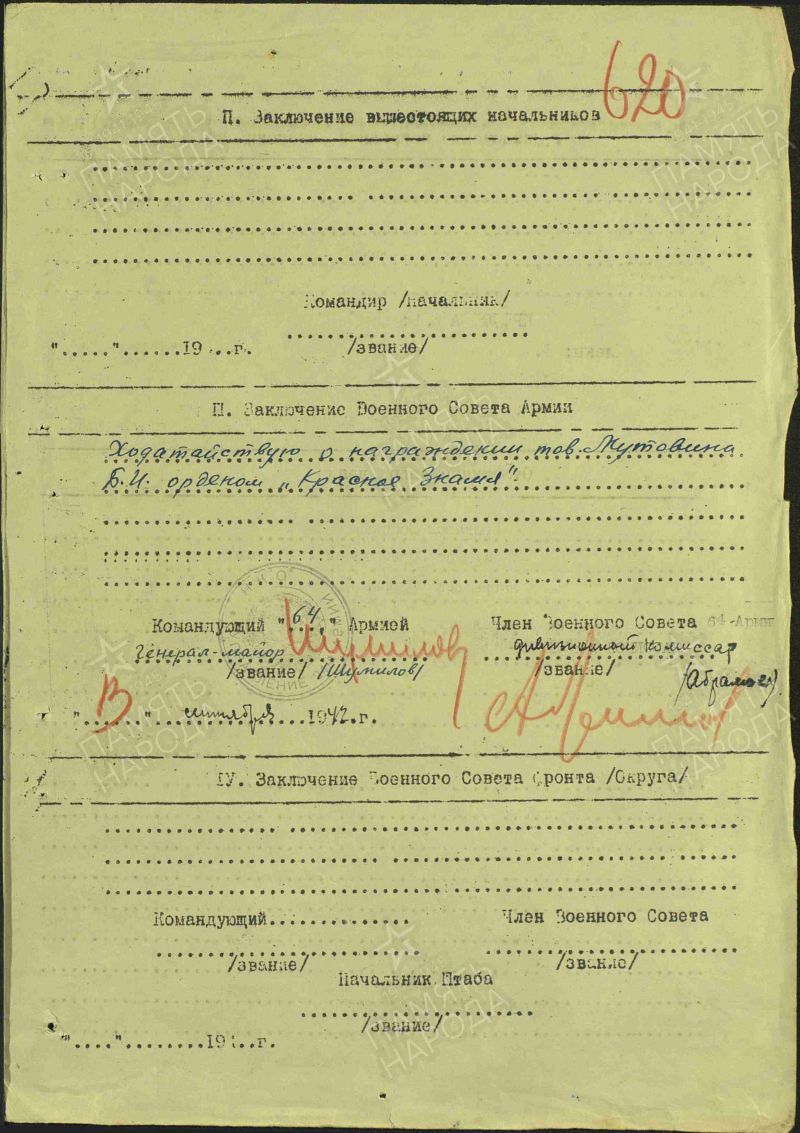 620
П. Заключение вышестоящих начальников
Командир /начальник/
"....."......19...г.
/звание/
П. Заключение Военного Совета Армии
Ходатайствую о награждении тов. Мутовина
Б.И. орденом "Красное Знамя".
Командующий "64" Армией
Член Военного Совета 64-Армии
Генерал-майор
дивизионный комиссар
/звание/ /Шумилов/
Шумилов
/звание/
/Абрамов/
"......" сентября ...1942.г.
IУ. Заключение Военного Совета фронта /Округа/
Командующий..............
Член Военного Совета
/звание/
/звание/
Начальник Штаба
/звание/
"....".........19...г.
ПАМЯТЬ НАРОДА